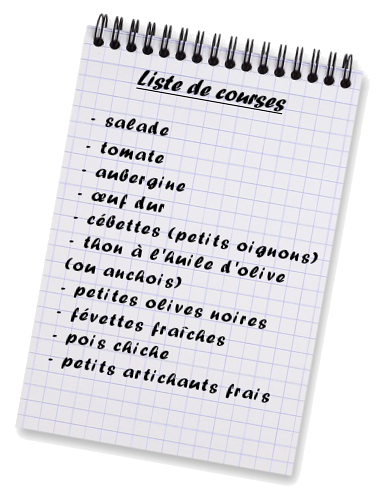 Liste de courses
- salade
- tomate
- aubergine
- œuf dur
- cébettes (petits oignons)
- thon à l'huile d'olive
(ou anchois)
- petites olives noires
- févettes fraîches
- pois chiche
- petits artichauts frais